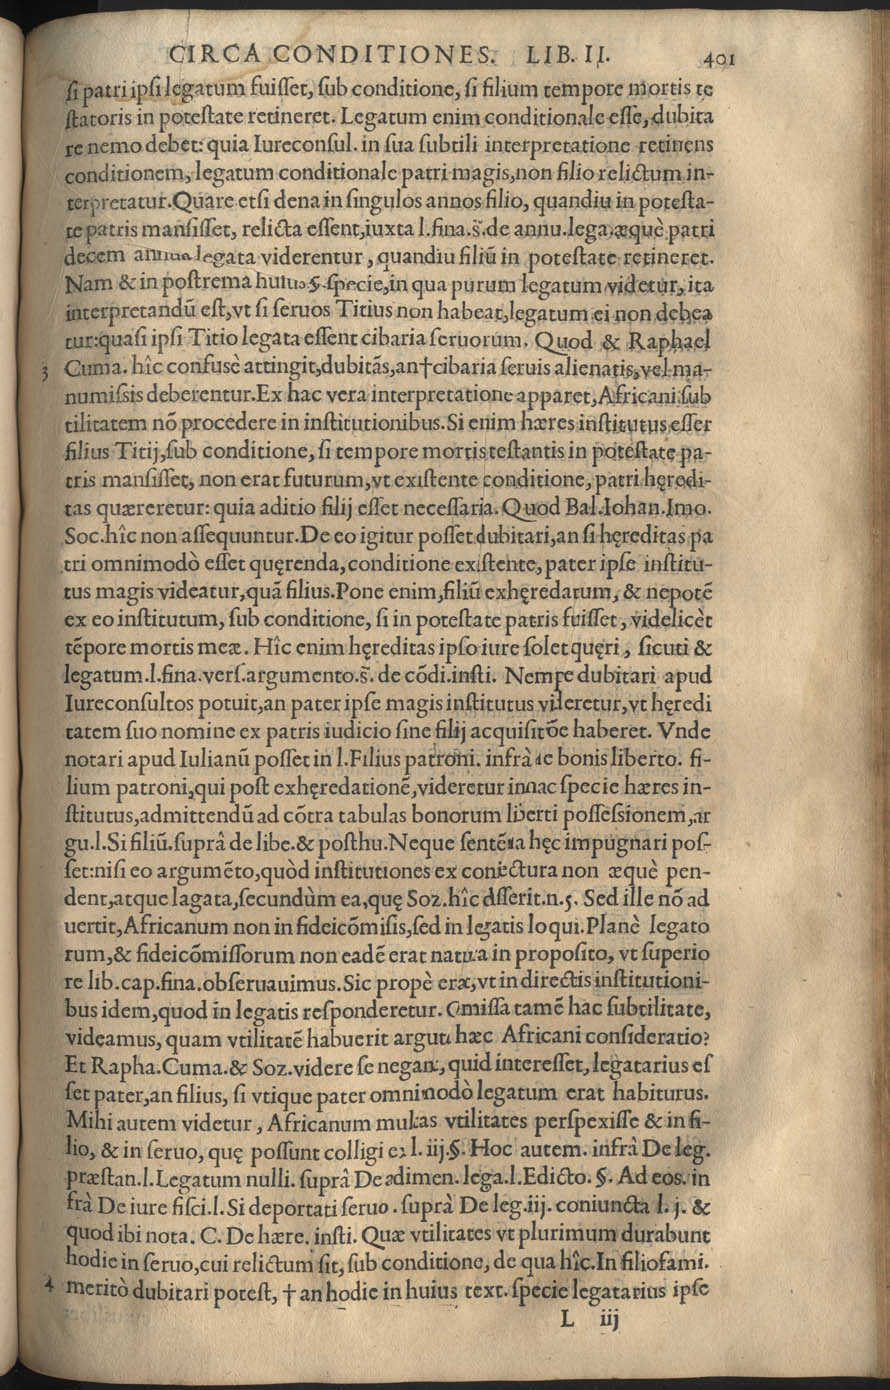 CIRCA CONDITIONES. LIB. II. 401
ſi patri ipſi legatum fuiſſet, ſub conditione, ſi filium tempore mortis te
ſtatoris in poteſtate retineret. Legatum enim conditionale eſſe, dubita
re nemo debet: quia Iureconſul. in ſua ſubtili interpretatione retinens
conditionem, legatum conditionale patri magis, non filio relictum in-
terpretatur. Quare etſi dena in ſingulos annos filio, quandiu in poteſta-
te patris manſiſſet, relicta eſſent, iuxta l. fina. §. de annu. lega. æquè patri
decem annua legata viderentur, quandiu filiũ in poteſtate retineret.
Nam & in poſtrema huius §. ſpecie, in qua purum legatum videtur, ita
interpretandũ eſt, vt ſi ſeruos Titius non habeat, legatum ei non debea
tur: quaſi ipſi Titio legata eſſent cibaria ſeruorum. Quod & Raphael
3 Cuma. hîc confusè attingit, dubitãs, an † cibaria ſeruis alienatis, vel ma-
numiſsis deberentur. Ex hac vera interpretatione apparet, Africani ſub
tilitatem nõ procedere in inſtitutionibus. Si enim hæres inſtitutus eſſet
filius Titij, ſub conditione, ſi tempore mortis teſtantis in poteſtate pa-
tris manſiſſet, non erat futurum, vt exiſtente conditione, patri hęredi-
tas quæreretur: quia aditio filij eſſet neceſſaria. Quod Bal. Iohan. Imo.
Soc. hîc non aſſequuntur. De eo igitur poſſet dubitari, an ſi hęreditas pa
tri omnimodò eſſet quęrenda, conditione exiſtente, pater ipſe inſtitu-
tus magis videatur, quã filius. Pone enim, filiũ exhęredatum, & nepotẽ
ex eo inſtitutum, ſub conditione, ſi in poteſtate patris fuiſſet, videlicèt
tẽpore mortis meæ. Hîc enim hęreditas ipſo iure ſolet quęri, ſicuti &
legatum. l. fina. verſ. argumento. §. de cõdi. inſti. Nempe dubitari apud
Iureconſultos potuit, an pater ipſe magis inſtitutus videretur, vt hęredi
tatem ſuo nomine ex patris iudicio ſine filij acquiſitõe haberet. Vnde
notari apud Iulianũ poſſet in l. Filius patroni. infrà de bonis liberto. fi-
lium patroni, qui poſt exhęredationẽ, videretur in hac ſpecie hæres in-
ſtitutus, admittendũ ad cõtra tabulas bonorum liberti poſſeſsionem, ar
gu. l. Si filiũ. ſuprâ de libe. & poſthu. Neque ſentẽtia hęc impugnari poſ-
ſet: niſi eo argumẽto, quòd inſtitutiones ex coniectura non æquè pen-
dent, atque lagata, ſecundùm ea, quę Soz. hîc diſſerit. n. 5. Sed ille nõ ad
uertit, Africanum non in fideicõmiſis, ſed in legatis loqui. Planè legato
rum, & fideicõmiſſorum non eadẽ erat natura in propoſito, vt ſuperio
re lib. cap. fina. obſeruauimus. Sic propè erat, vt in directis inſtitutioni-
bus idem, quod in legatis reſponderetur. Omiſſa tamẽ hac ſubtilitate,
videamus, quam vtilitatẽ habuerit arguta hæc Africani conſideratio?
Et Rapha. Cuma. & Soz. videre ſe negant, quid intereſſet, legatarius eſ
ſet pater, an filius, ſi vtique pater omnimodò legatum erat habiturus.
Mihi autem videtur, Africanum multas vtilitates perſpexiſſe & in fi-
lio, & in ſeruo, quę poſſunt colligi ex l. iij. §. Hoc autem. infrâ De leg.
præſtan. l. Legatum nulli. ſuprâ De adimen. lega. l. Edicto. §. Ad eos. in
frà De iure fiſci. l. Si deportati ſeruo. ſuprà De leg. iij. coniuncta l. j. &
quod ibi nota. C. De hære. inſti. Quæ vtilitates vt plurimum durabunt
hodie in ſeruo, cui relictum ſit, ſub conditione, de qua hîc. In filiofami.
4 meritò dubitari poteſt, † an hodie in huius text. ſpecie legatarius ipſe
L iij